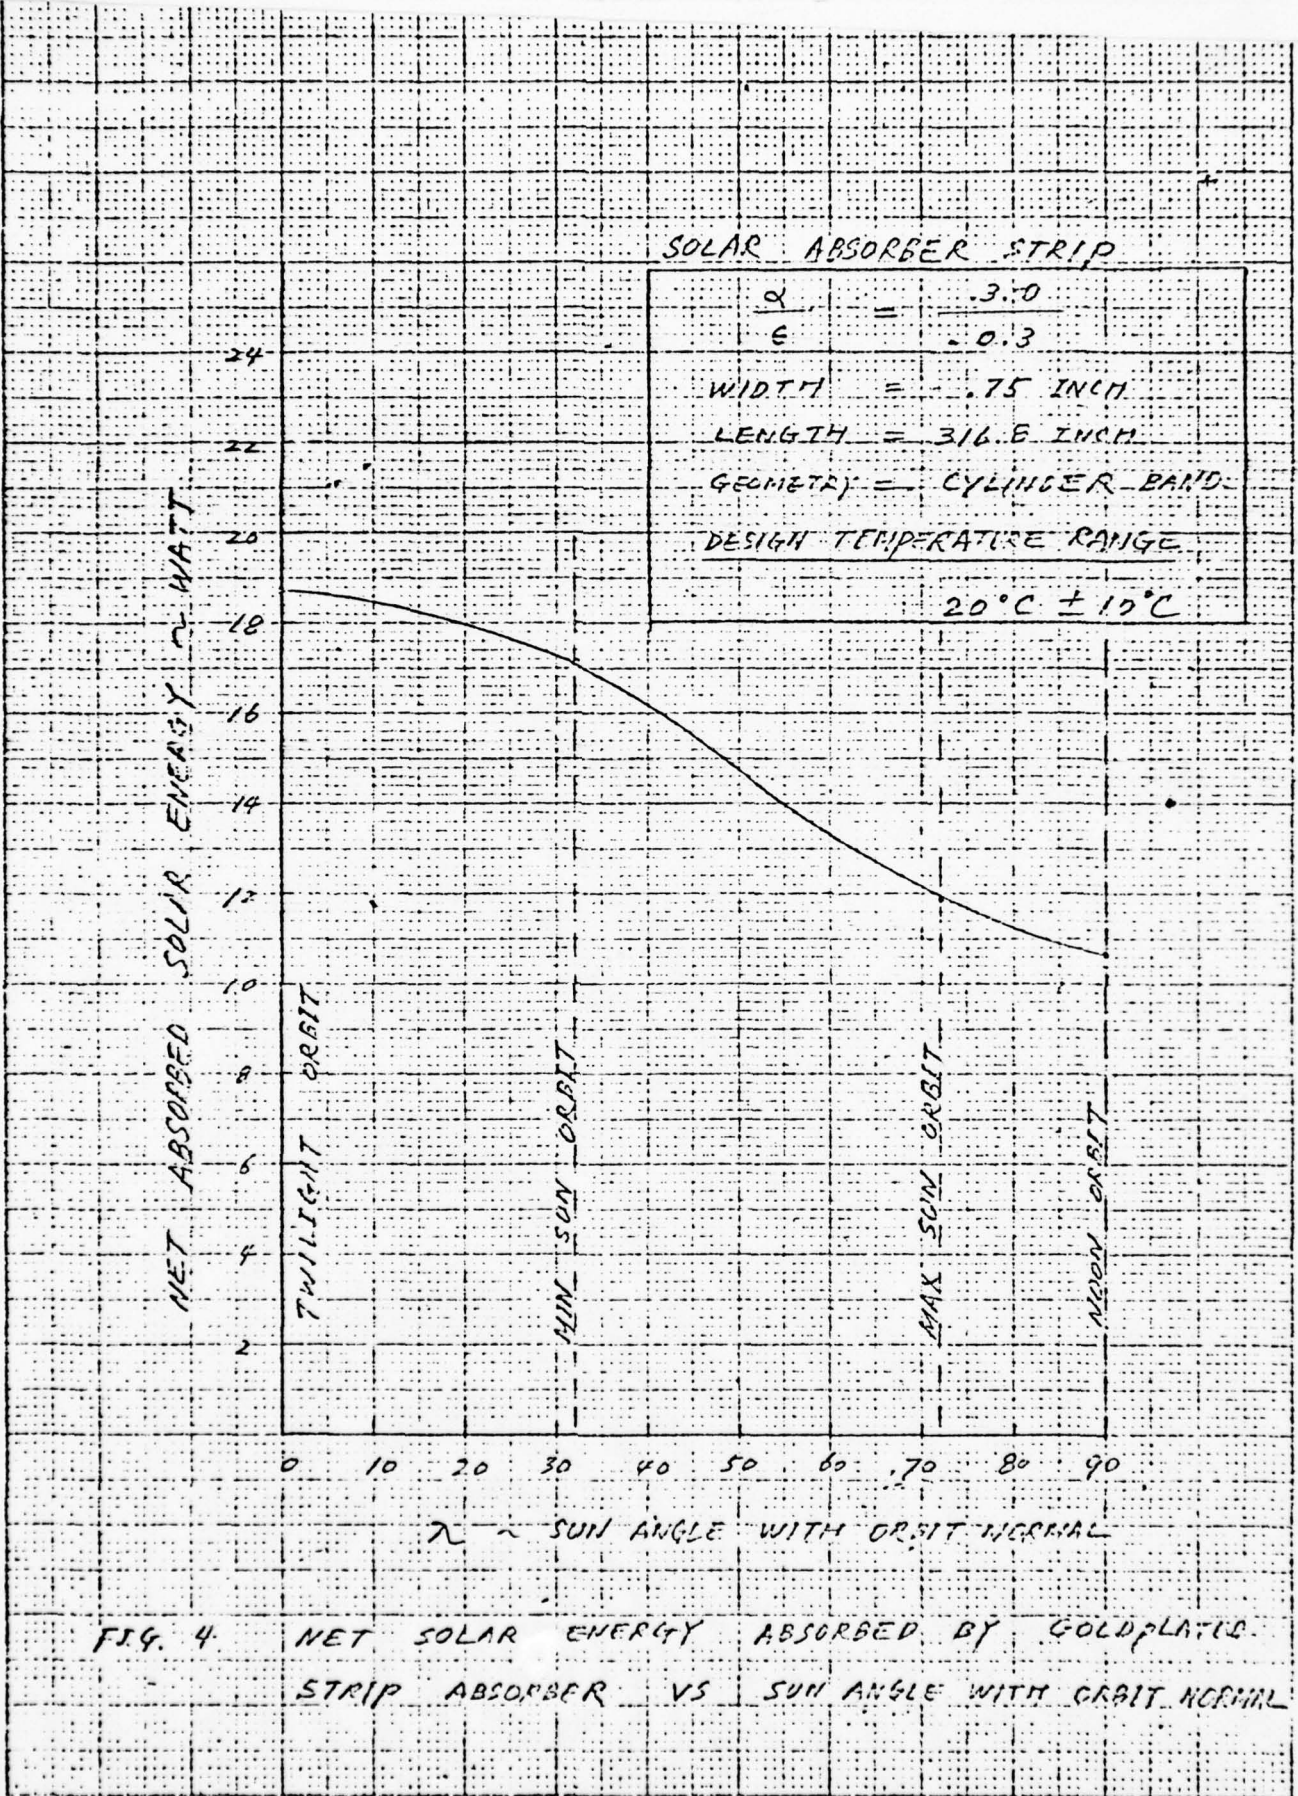 SOLAR ABSORBER STRIP
α / ε = .3.0 / 0.3
WIDTH = .75 INCH
LENGTH = INCH
GEOMETRY = CYLINDER BAND
DESIGN TEMPERATURE RANGE
20°C ± 10°C
24
22
20
18
16
14
12
10
8
6
4
2
NET ABSORBED SOLAR ENERGY ~ WATT
TWILIGHT ORBIT
MIN SUN ORBIT
MAX SUN ORBIT
NOON ORBIT
0 10 20 30 40 50 60 70 80 90
λ ~ SUN ANGLE WITH ORBIT NORMAL
FIG. 4. NET SOLAR ENERGY ABSORBED BY GOLDPLATED
STRIP ABSORBER VS SUN ANGLE WITH ORBIT NORMAL